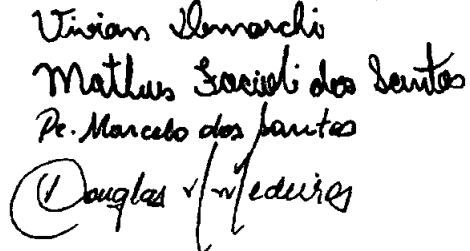 Vivian Demarchi
Matheus Facioli dos Santos
Pe. Marcelo dos Santos
Douglas Medeiros